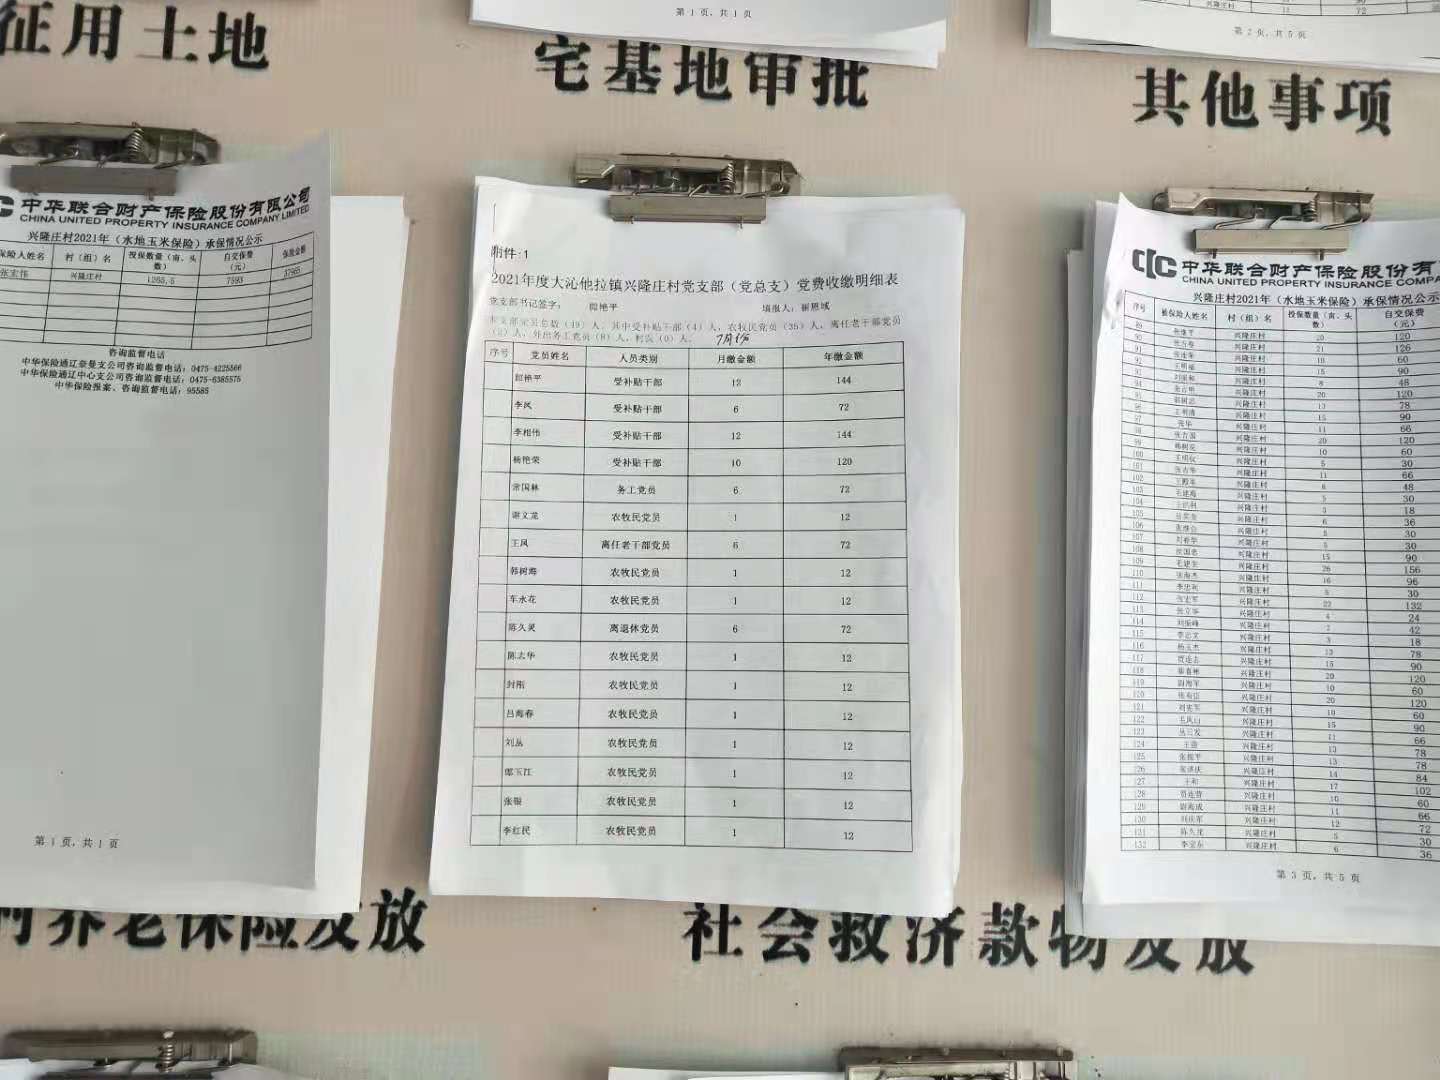 征用土地
第 1 页, 共 1 页
宅基地审批
兴隆庄村
11
72
第 2 页, 共 5 页
其他事项
中华联合财产保险股份有限公司
CHINA UNITED PROPERTY INSURANCE COMPANY LIMITED
兴隆庄村2021年（水地玉米保险）承保情况公示
保险人姓名 村（组）名 投保数量（亩、头数） 自交保费（元） 保险金额
张宏伟 兴隆庄村 1265.5 7593 37965
咨询监督电话
中华保险通辽奈曼支公司咨询监督电话：0475-4225566
中华保险通辽中心支公司咨询监督电话：0475-6385575
中华保险报案、咨询监督电话：95585
第 1 页, 共 1 页
附件:1
2021年度大沁他拉镇兴隆庄村党支部（党总支）党费收缴明细表
党支部书记签字： 艳平 填报人：崔恩域
本支部党员总数（49）人，其中受补贴干部（4）人，农牧民党员（35）人，离任老干部党员
（2）人，外出务工党员（8）人，利民（0）人。
序号 党员姓名 人员类别 月缴金额 年缴金额
艳平 受补贴干部 12 144
李凤 受补贴干部 6 72
李相伟 受补贴干部 12 144
杨艳荣 受补贴干部 10 120
常国林 务工党员 6 72
谢文龙 农牧民党员 1 12
王凤 离任老干部党员 6 72
韩树海 农牧民党员 1 12
车水花 农牧民党员 1 12
陈久灵 离退休党员 6 72
陈志华 农牧民党员 1 12
封刚 农牧民党员 1 12
吕海春 农牧民党员 1 12
刘丛 农牧民党员 1 12
郎玉江 农牧民党员 1 12
张银 农牧民党员 1 12
李红民 农牧民党员 1 12
中华联合财产保险股份有
CHINA UNITED PROPERTY INSURANCE COMPA
兴隆庄村2021年（水地玉米保险）承保情况公示
序号 被保险人姓名 村（组）名 投保数量（亩、头数） 自交保费（元）
89 兴隆庄村 20 120
90 兴隆庄村 21 126
91 兴隆庄村 10 60
92 王明福 兴隆庄村 15 90
93 兴隆庄村 8 48
94 兴隆庄村 20 120
95 韩树志 兴隆庄村 13 78
96 兴隆庄村 15 90
97 兴隆庄村 11 66
98 张吉国 兴隆庄村 20 120
99 兴隆庄村 10 60
100 兴隆庄村 5 30
101 兴隆庄村 11 66
102 兴隆庄村 8 48
103 毛建海 兴隆庄村 5 30
104 兴隆庄村 3 18
105 兴隆庄村 6 36
106 兴隆庄村 5 30
107 兴隆庄村 5 30
108 兴隆庄村 15 90
109 兴隆庄村 26 156
110 张海杰 兴隆庄村 16 96
111 李忠利 兴隆庄村 5 30
112 张宏军 兴隆庄村 22 132
113 兴隆庄村 4 24
114 刘振峰 兴隆庄村 7 42
115 李志文 兴隆庄村 3 18
116 杨玉杰 兴隆庄村 13 78
117 贾连志 兴隆庄村 15 90
118 兴隆庄村 20 120
119 尉海军 兴隆庄村 10 60
120 兴隆庄村 20 120
121 刘宪军 兴隆庄村 10 60
122 毛凤山 兴隆庄村 15 90
123 丛日发 兴隆庄村 11 66
124 兴隆庄村 13 78
125 张振平 兴隆庄村 13 78
126 兴隆庄村 14 84
127 王和 兴隆庄村 17 102
128 贾连营 兴隆庄村 10 60
129 尉海成 兴隆庄村 11 66
130 刘庆军 兴隆庄村 12 72
131 陈久龙 兴隆庄村 5 30
132 李宝东 兴隆庄村 6 36
第 3 页, 共 5 页
养老保险发放
社会救济款物发放